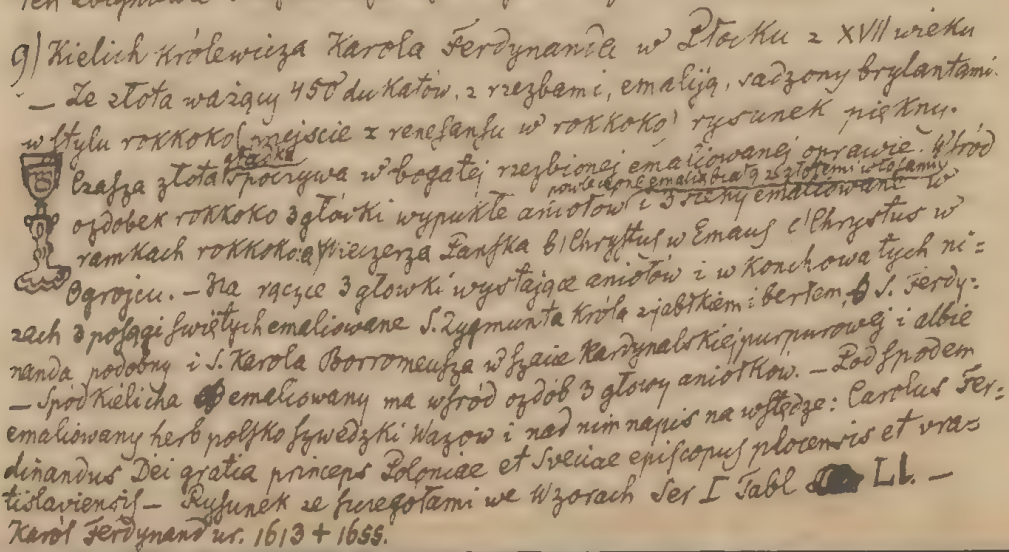 9) Kielich Królewicza Karola Ferdynanda w Płocku z XVII wieku
— Ze złota ważący 450 dukatów, z rzeźbami, emaliją, sadzony brylantami.
w stylu rokkoko (przejście z renesansu w rokkoko) rysunek piękny.
Czasza złota gładka spoczywa w bogatej rzezbionej emaliowanej oprawie. Wśród
powleczone emalią białą ze złotemi włosami
ozdobek rokkoko 3 główki wypukłe aniołów i 3 sceny emaliowane w
ramkach rokkoko: a) Wieczerza Pańska b) Chrystus w Emaus c) Chrystus w
Ogrojcu. — Na rączce 3 głowki wystające aniołów i w konchowatych ni=
zach 3 posągi świętych emaliowane S. Zygmunta Króla z jabłkiem i berłem, S. Ferdy=
nanda podobny i S. Karola Borromeusza w szacie Kardynalskiej purpurowej i albie
— Spód Kielicha emaliowany ma wśród ozdób 3 głowy aniołków. — Pod spodem
emaliowany herb polsko szwedzki Wazow i nad nim napis na wstędze: Carolus Fer=
dinandus Dei gratia princeps Poloniae et Sveciae episcopus plocensis et vra=
tislaviensis — Rysunek ze szczegołami we Wzorach Ser I Tabl LI. —
Karol Ferdynand ur. 1613 + 1655.